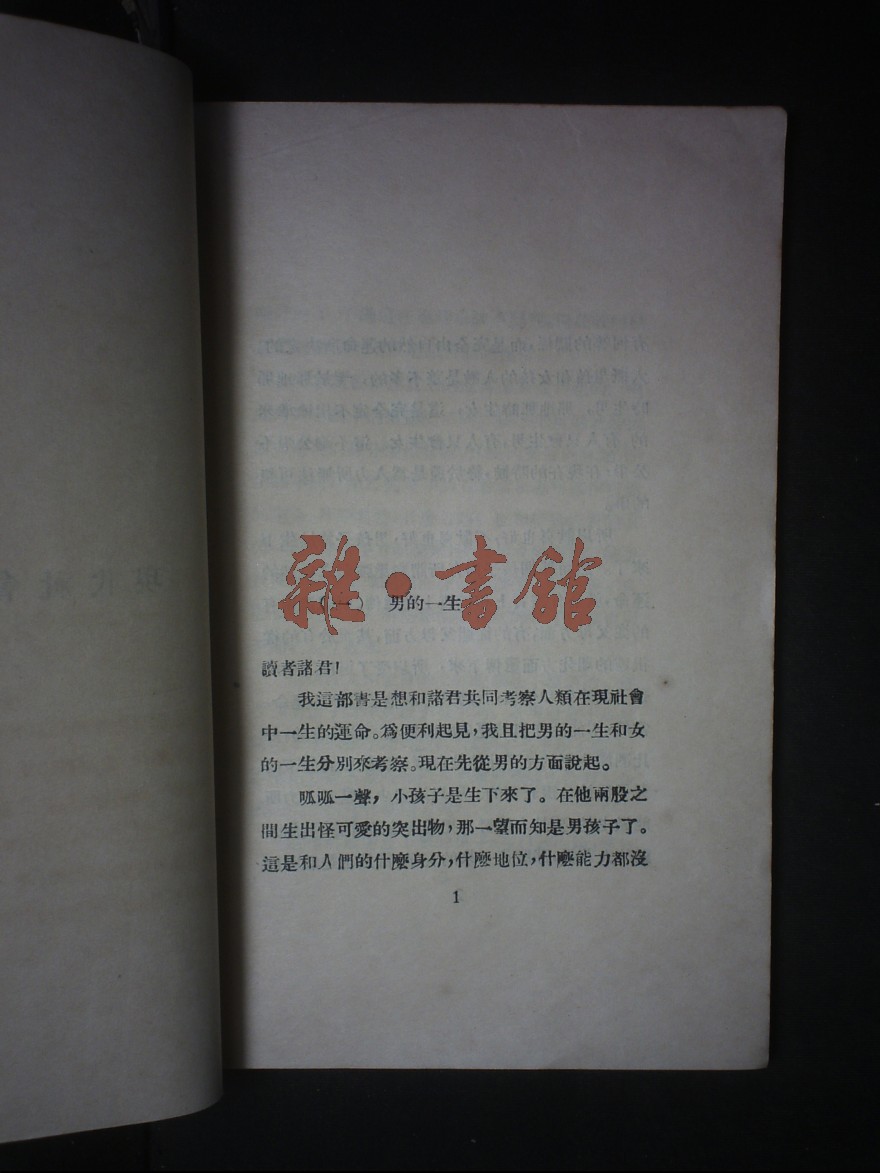 現代社會
雜·書館
(一) 男的一生
讀者諸君!
我這部書是想和諸君共同考察人類在現社會
中一生的運命。爲便利起見,我且把男的一生和女
的一生分別來考察。現在先從男的方面說起。
呱呱一聲,小孩子是生下來了。在他兩股之
間生出怪可愛的突出物,那一望而知是男孩子了。
這是和人們的什麽身分,什麽地位,什麽能力都沒
1